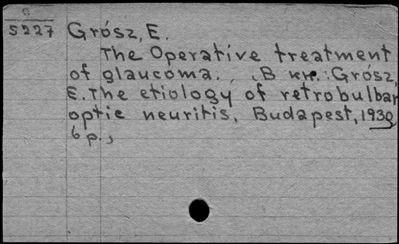 G
5227 Grósz, E.
The Operative treatment
of glaucoma. , (В кн.: Grósz,
E. The etiology of retrobulbar
optic neuritis, Budapest, 1930
6 p.,